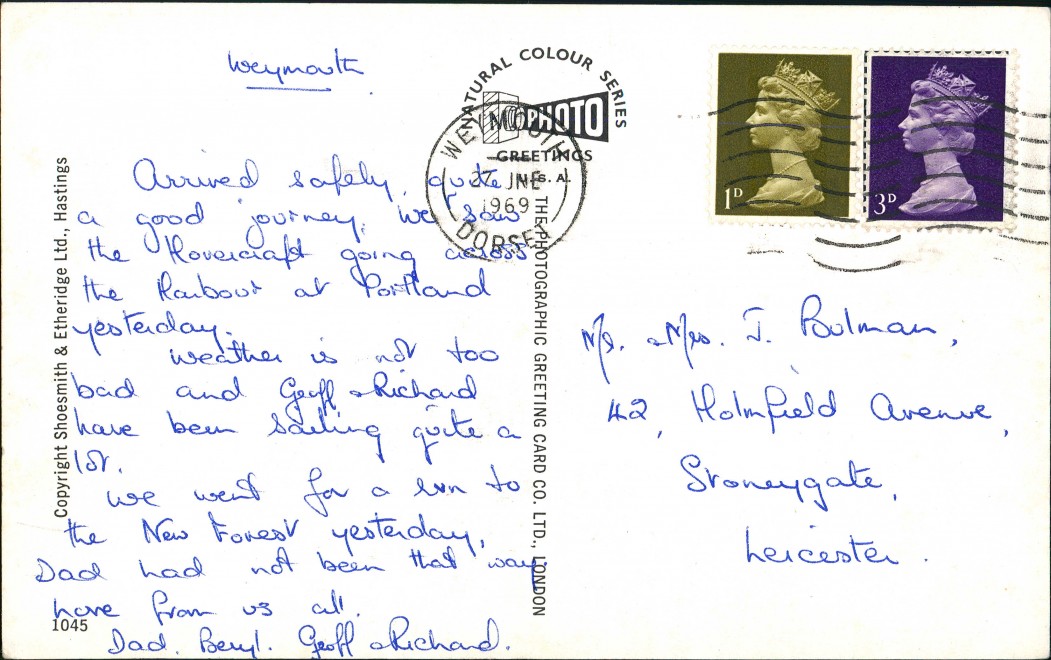 Weymouth
Arrived safely, quite
a good journey. We saw
the Hovercraft going across
the Harbour at Portland
yesterday.
Weather is not too
bad and Geoff & Richard
have been sailing quite a
lot.
We went for a run to
the New Forest yesterday,
Dad had not been that way
love from us all.
Dad. Beryl. Geoff & Richard.
Copyright Shoesmith & Etheridge Ltd., Hastings
1045
NATURAL COLOUR SERIES
PHOTO
GREETINGS
THE PHOTOGRAPHIC GREETING CARD CO. LTD., LONDON
WEYMOUTH
27 JNE
1969
DORSET
1D
3D
Mr. & Mrs. J. Poolman,
42, Holmfield Avenue,
Stoneygate,
Leicester.